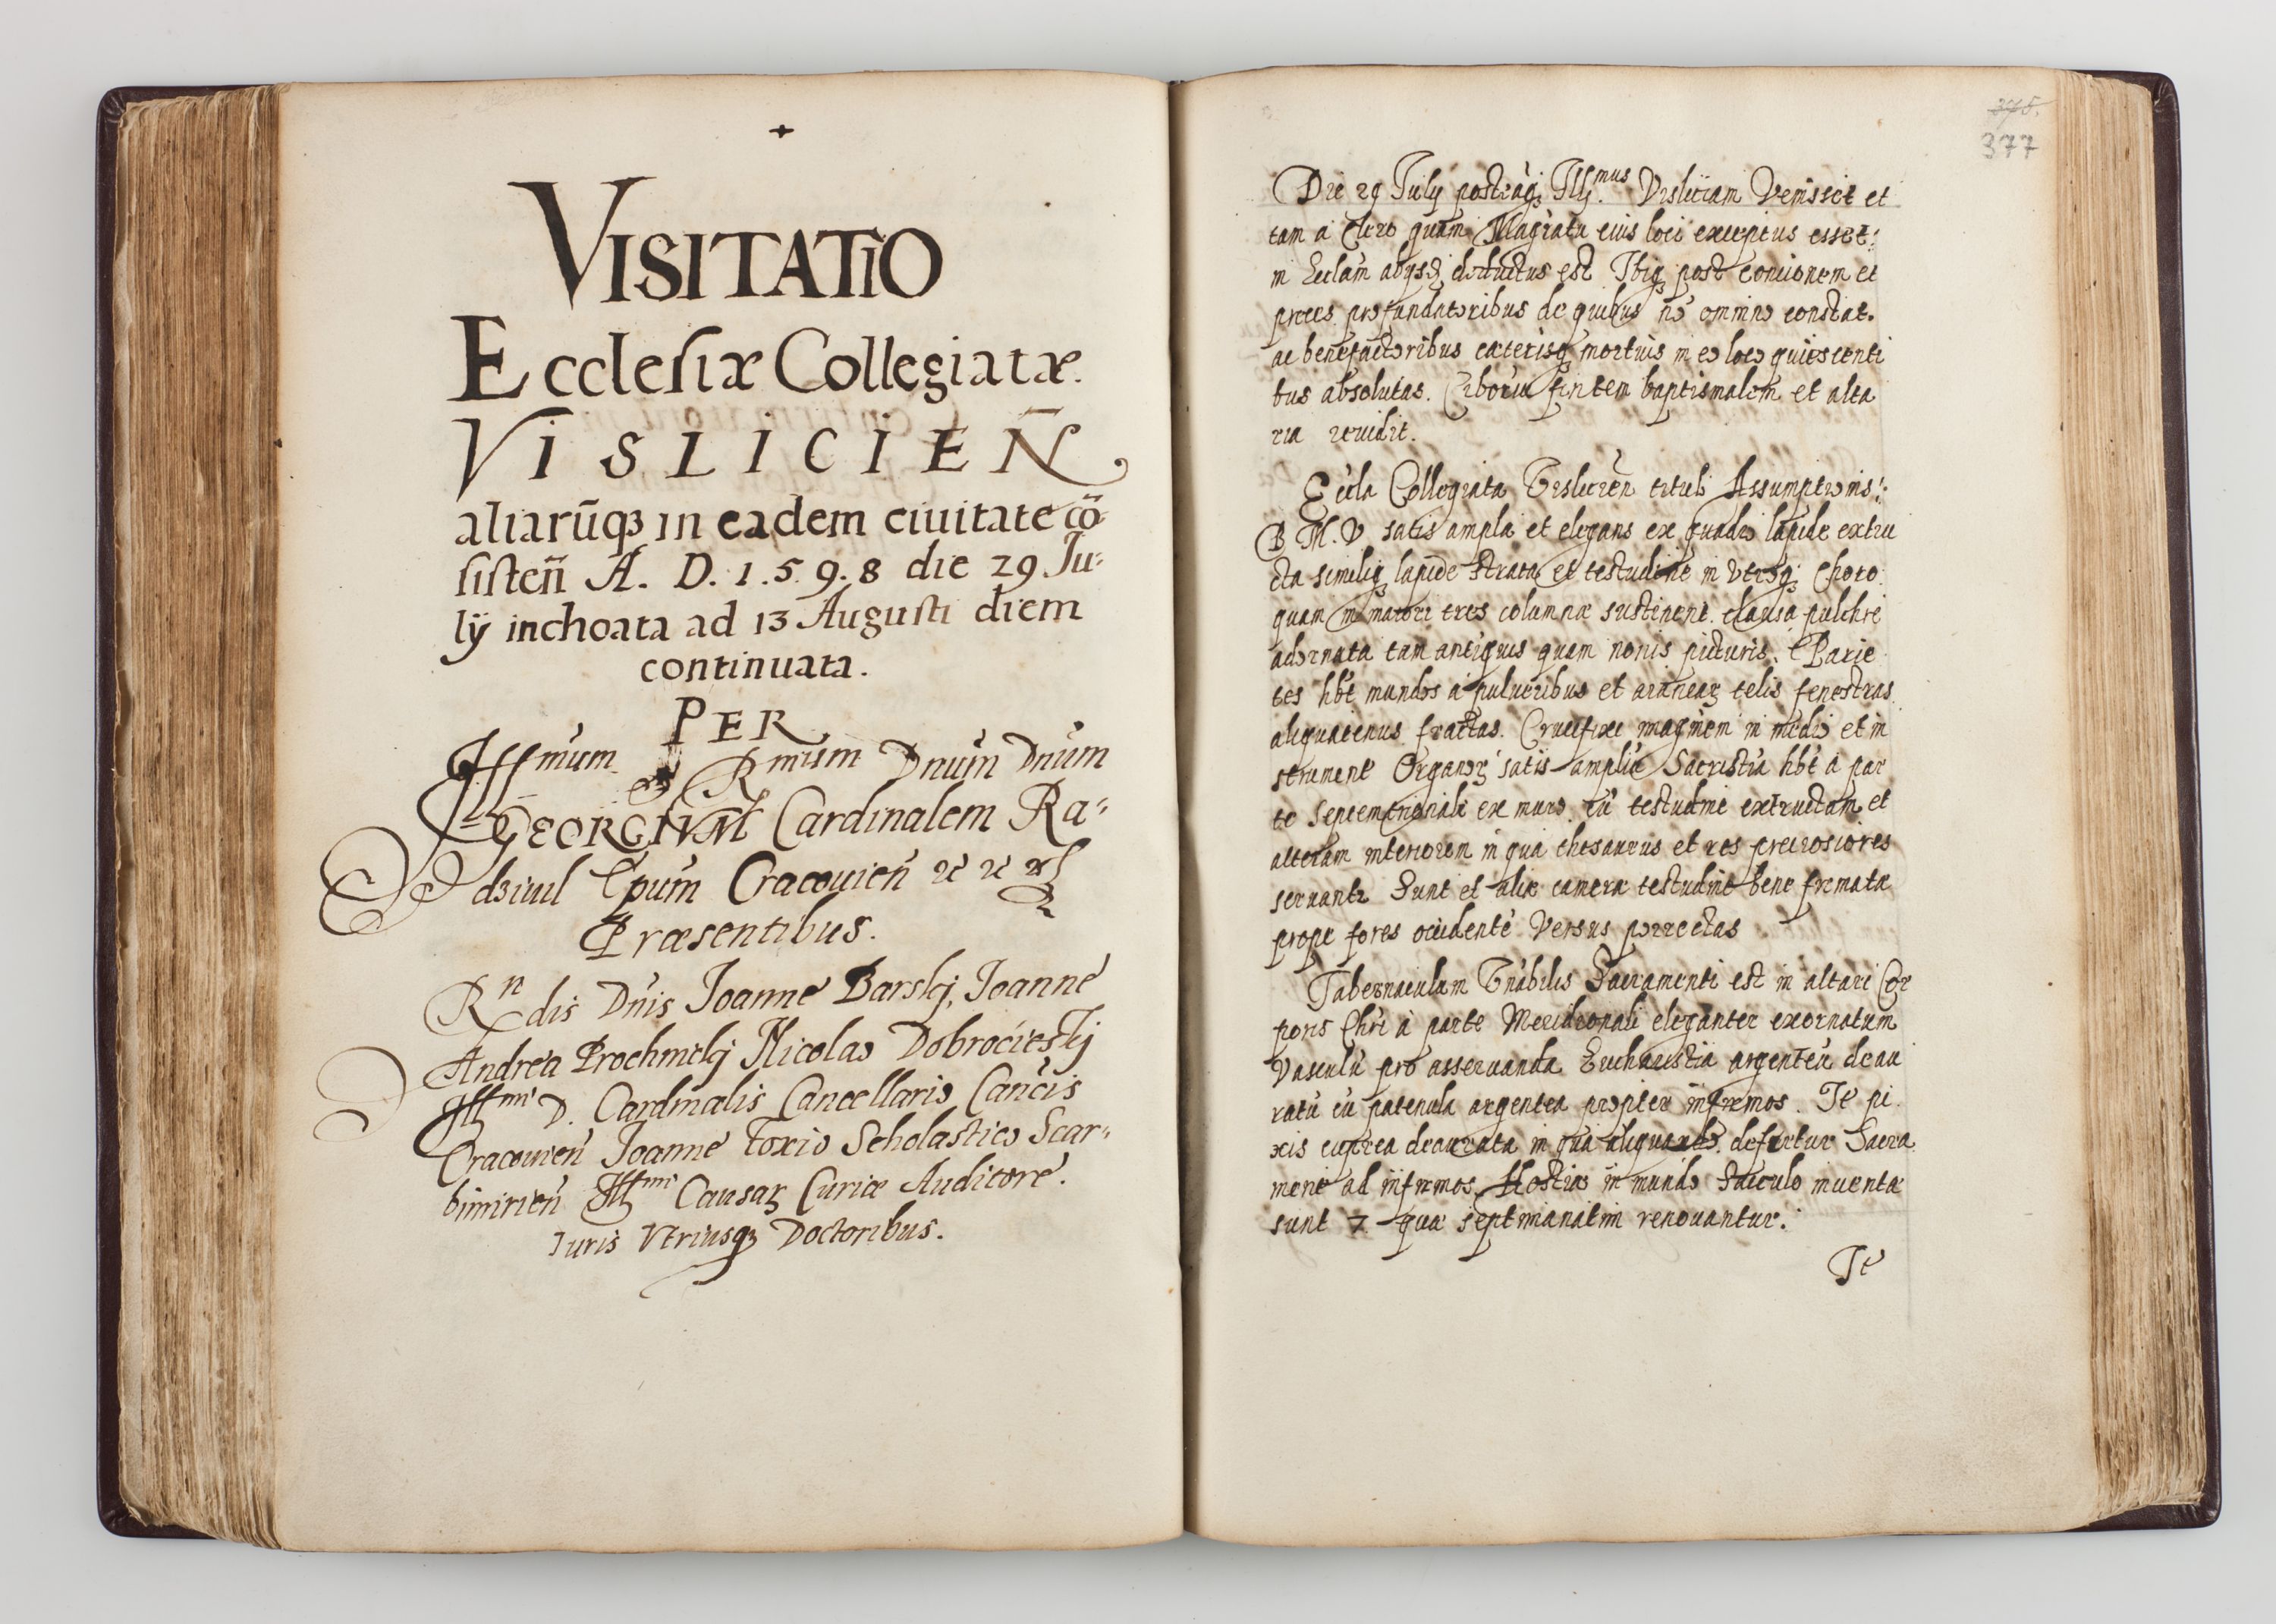 VISITATIO
Ecclesiæ Collegiatæ.
VISLICIEÑ
aliarūq3 in eadem ciuitate cō-
sisteñ A. D. 1.5.9.8 die 29 Ju-
lÿ inchoata ad 13 Augusti diem
continuata.
PER
Illmum Rmum Dnum Dnum
GEORGIVM Cardinalem Ra-
dziuil Epum Cracouień
Præsentibus.
Rndis Dnis Joanne Barskj, Joanne
Andrea Prochnickj Nicolao Dobrociesskj
Illmi D. Cardinalis Cancellario Cancis
Cracouień Joanne Foxio Scholastico Scar-
bimirień Illmi Causaꝝ Curiæ Auditore.
Iuris Vtriusq3 Doctoribus.
375.
377
Die 29 Julÿ postēaq3 Illmus Visliciam Venisset et
tam a Clero quam Magratu eius loci exceptus esset:
in Ecclam deductus est Ibiq3 post concionem et
preces pro fundatoribus de quibus nō omnino constat.
ac benefactoribus cæterisq3 mortuis in eo loco quiescenti
bus absolutas. Ciboriū fontem baptismalem et alta
ria reuidit.
Eccla Collegiata Visliceń tituli Assumptionis:
B. M. V. satis ampla et elegans ex quadro lapide extru
cta similiq3 lapide strata et testudine in vtroq3 Choro
quam in maiori tres columnæ sustinent clausa pulchre
adornata tam antiquis quam nouis picturis. Parie
tes hbt mundos a pulueribus et aranearꝝ telis fenestras
aliquatenus fractas. Crucifixi imaginem in medio et in
strument Organorꝝ satis ampliū Sacristiā hbt a par
te septemtrionali ex muro cū testudine extructam et
alteram interiorem in qua thesaurus et res preciosiores
seruantr Sunt et aliæ cameræ testudine bene firmatæ
prope fores occidentē Versus porrectas
Tabernaculum Vnrabilis Sacramenti est in altari Cor
poris Chri a parte Meridionali eleganter exornatum
Vasculū pro asseruanda Eucharistia argenteū deau
ratū cū patenula argentea propter infirmos. It pi
xis cuprea deaurata in qua aliquando defertur Sacra
ment ad infirmos. Hostiæ in mundo Sacculo inuentæ
sunt 7 quæ septimanatim renouantur.
It